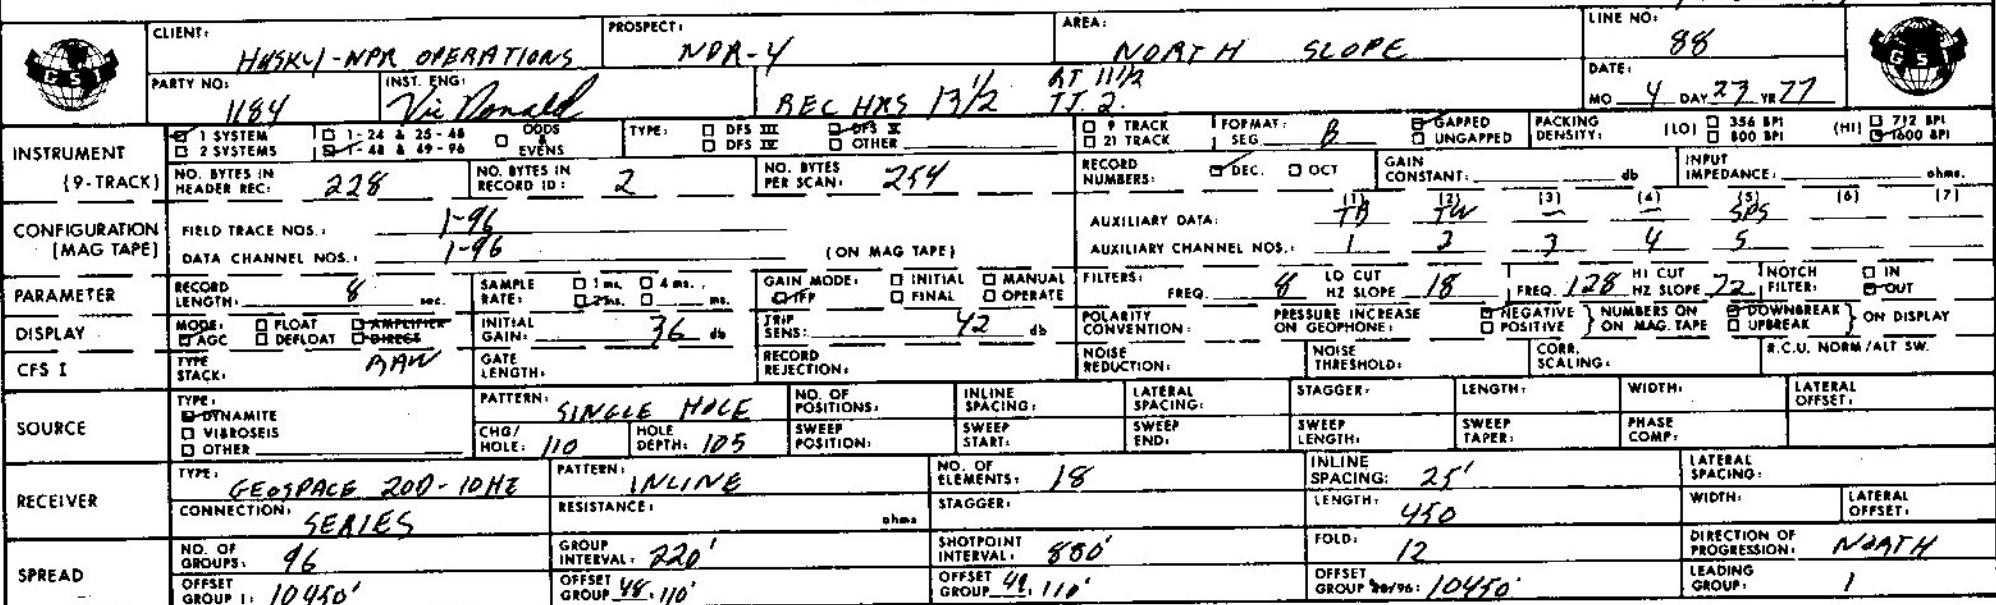 CLIENT: HUSKY-NPR OPERATIONS PROSPECT: NPR-4 AREA: NORTH SLOPE LINE NO: 88
GSI PARTY NO: 1184 INST. ENG: Vic Donald REC HRS 13 1/2 AT 11 1/2 TT. 2. DATE: MO 4 DAY 23 YR 77 GSI
INSTRUMENT (9-TRACK) 1 SYSTEM 1-24 & 25-48 ODDS & EVENS TYPE: DFS III DFS V 9 TRACK FORMAT: SEG B GAPPED PACKING DENSITY: (LO) 356 BPI (HI) 712 BPI
2 SYSTEMS 1-48 & 49-96 DFS IV OTHER 21 TRACK UNGAPPED 800 BPI 1600 BPI
NO. BYTES IN HEADER REC: 228 NO. BYTES IN RECORD ID: 2 NO. BYTES PER SCAN: 254 RECORD NUMBERS: DEC. OCT GAIN CONSTANT: db INPUT IMPEDANCE: ohms.
CONFIGURATION (MAG TAPE) FIELD TRACE NOS.: 1-96 AUXILIARY DATA: (1) TB (2) TW (3) — (4) — (5) SPS (6) (7)
DATA CHANNEL NOS.: 1-96 (ON MAG TAPE) AUXILIARY CHANNEL NOS.: 1 2 3 4 5
PARAMETER RECORD LENGTH: 8 sec. SAMPLE RATE: 1 ms. 4 ms. 2 ms. ms. GAIN MODE: INITIAL MANUAL IFP FINAL OPERATE FILTERS: FREQ. 8 LO CUT HZ SLOPE 18 FREQ. 128 HI CUT HZ SLOPE 72 NOTCH FILTER: IN OUT
DISPLAY MODE: FLOAT AMPLIFIER AGC DEFLOAT DIRECT INITIAL GAIN: 36 db TRIP SENS: 42 db POLARITY CONVENTION: PRESSURE INCREASE ON GEOPHONE: NEGATIVE POSITIVE } NUMBERS ON ON MAG. TAPE DOWNBREAK UPBREAK } ON DISPLAY
CFS I TYPE STACK: RAW GATE LENGTH: RECORD REJECTION: NOISE REDUCTION: NOISE THRESHOLD: CORR. SCALING: R.C.U. NORM/ALT SW.
SOURCE TYPE: DYNAMITE VIBROSEIS OTHER PATTERN: SINGLE HOLE NO. OF POSITIONS: INLINE SPACING: LATERAL SPACING: STAGGER: LENGTH: WIDTH: LATERAL OFFSET:
CHG/HOLE: 110 HOLE DEPTH: 105 SWEEP POSITION: SWEEP START: SWEEP END: SWEEP LENGTH: SWEEP TAPER: PHASE COMP:
RECEIVER TYPE: GEOSPACE 20D-10HZ PATTERN: INLINE NO. OF ELEMENTS: 18 INLINE SPACING: 25' LATERAL SPACING:
CONNECTION: SERIES RESISTANCE: ohms STAGGER: LENGTH: 450 WIDTH: LATERAL OFFSET:
SPREAD NO. OF GROUPS: 96 GROUP INTERVAL: 220' SHOTPOINT INTERVAL: 880' FOLD: 12 DIRECTION OF PROGRESSION: NORTH
OFFSET GROUP 1: 10450' OFFSET GROUP 48: 110' OFFSET GROUP 49: 110' OFFSET GROUP /96: 10450' LEADING GROUP: 1